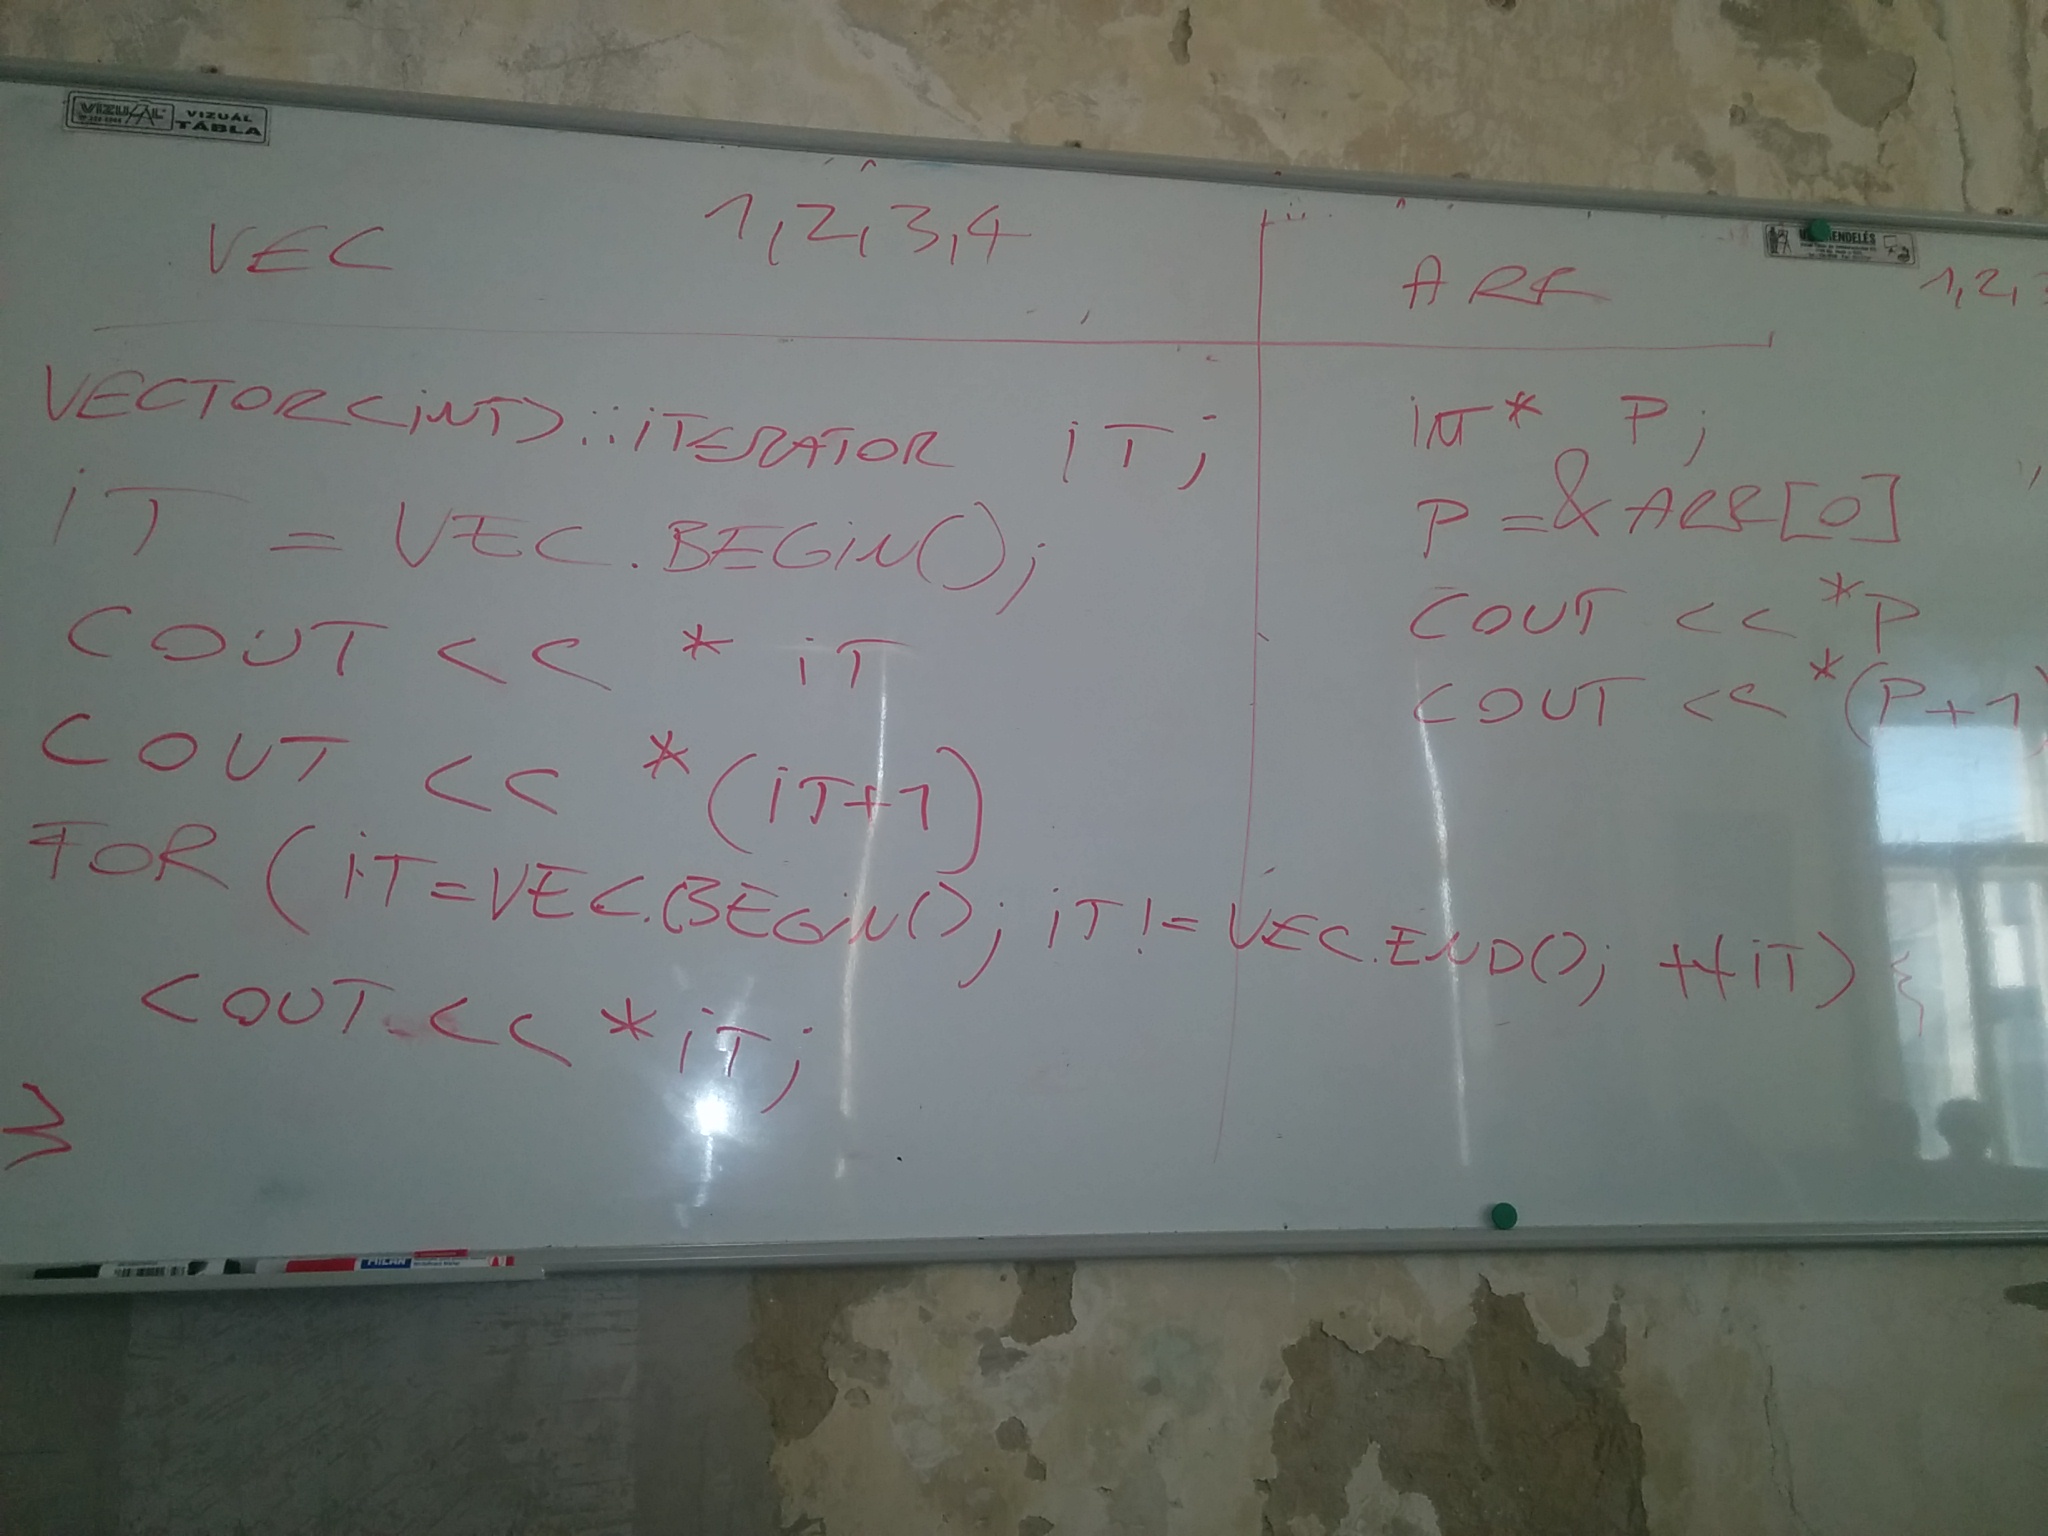 VIZUÁL
VIZUÁL
TÁBLA
VEC 1,2,3,4
VECTOR<INT>::ITERATOR IT;
IT = VEC.BEGIN();
COUT << * IT
COUT << *(IT+1)
FOR (IT=VEC.BEGIN(); IT!=VEC.END(); ++IT) {
COUT << *IT;
}
ARR 1,2,3
INT* P;
P = &ARR[0]
COUT << *P
COUT << *(P+1)
MILAN